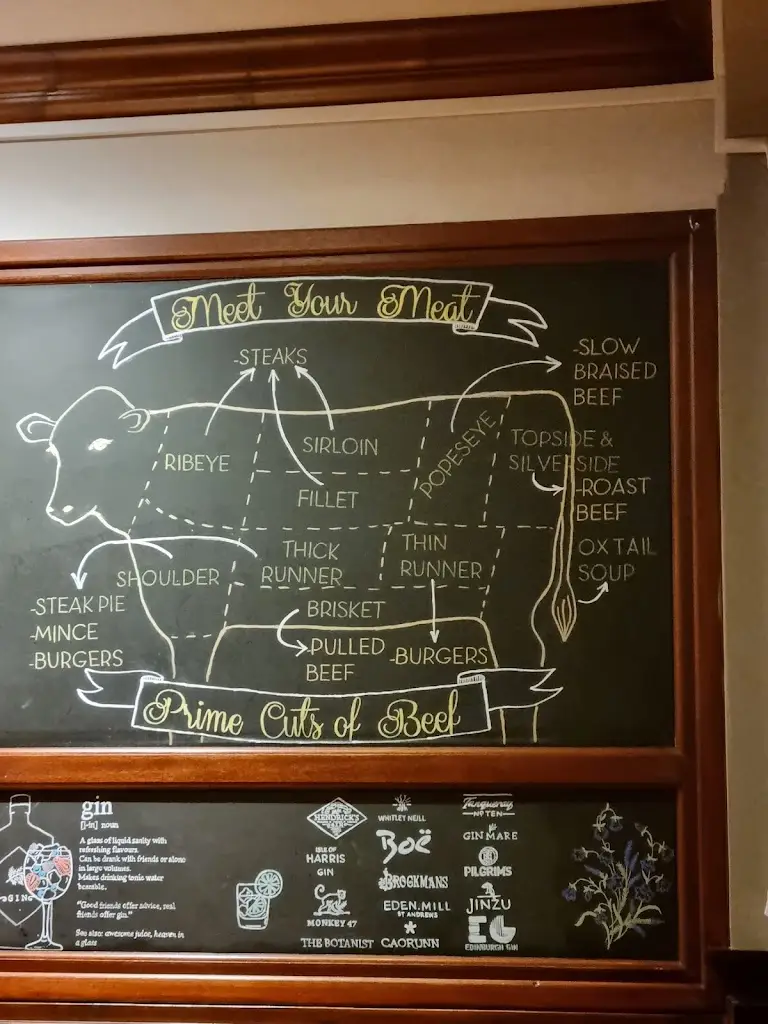 Meet Your Meat
-STEAKS
-SLOW
BRAISED
BEEF
RIBEYE
SIRLOIN
POPESEYE
TOPSIDE &
SILVERSIDE
FILLET
-ROAST
BEEF
SHOULDER
THICK
RUNNER
THIN
RUNNER
OXTAIL
SOUP
-STEAK PIE
-MINCE
-BURGERS
BRISKET
-PULLED
BEEF
-BURGERS
Prime Cuts of Beef
gin
[j-in] noun
A glass of liquid sanity with
refreshing flavours.
Can be drank with friends or alone
in large volumes.
Makes drinking tonic water
bearable.
"Good friends offer advice, real
friends offer gin."
See also: awesome juice, heaven in
a glass
GIN
HENDRICK'S
GIN
ISLE OF
HARRIS
GIN
MONKEY 47
THE BOTANIST
WHITLEY NEILL
Boë
BROCKMANS
EDEN.MILL
ST ANDREWS
CAORUNN
Tanqueray
Nº TEN
GIN MARE
PILGRIMS
JINZU
EG
EDINBURGH GIN